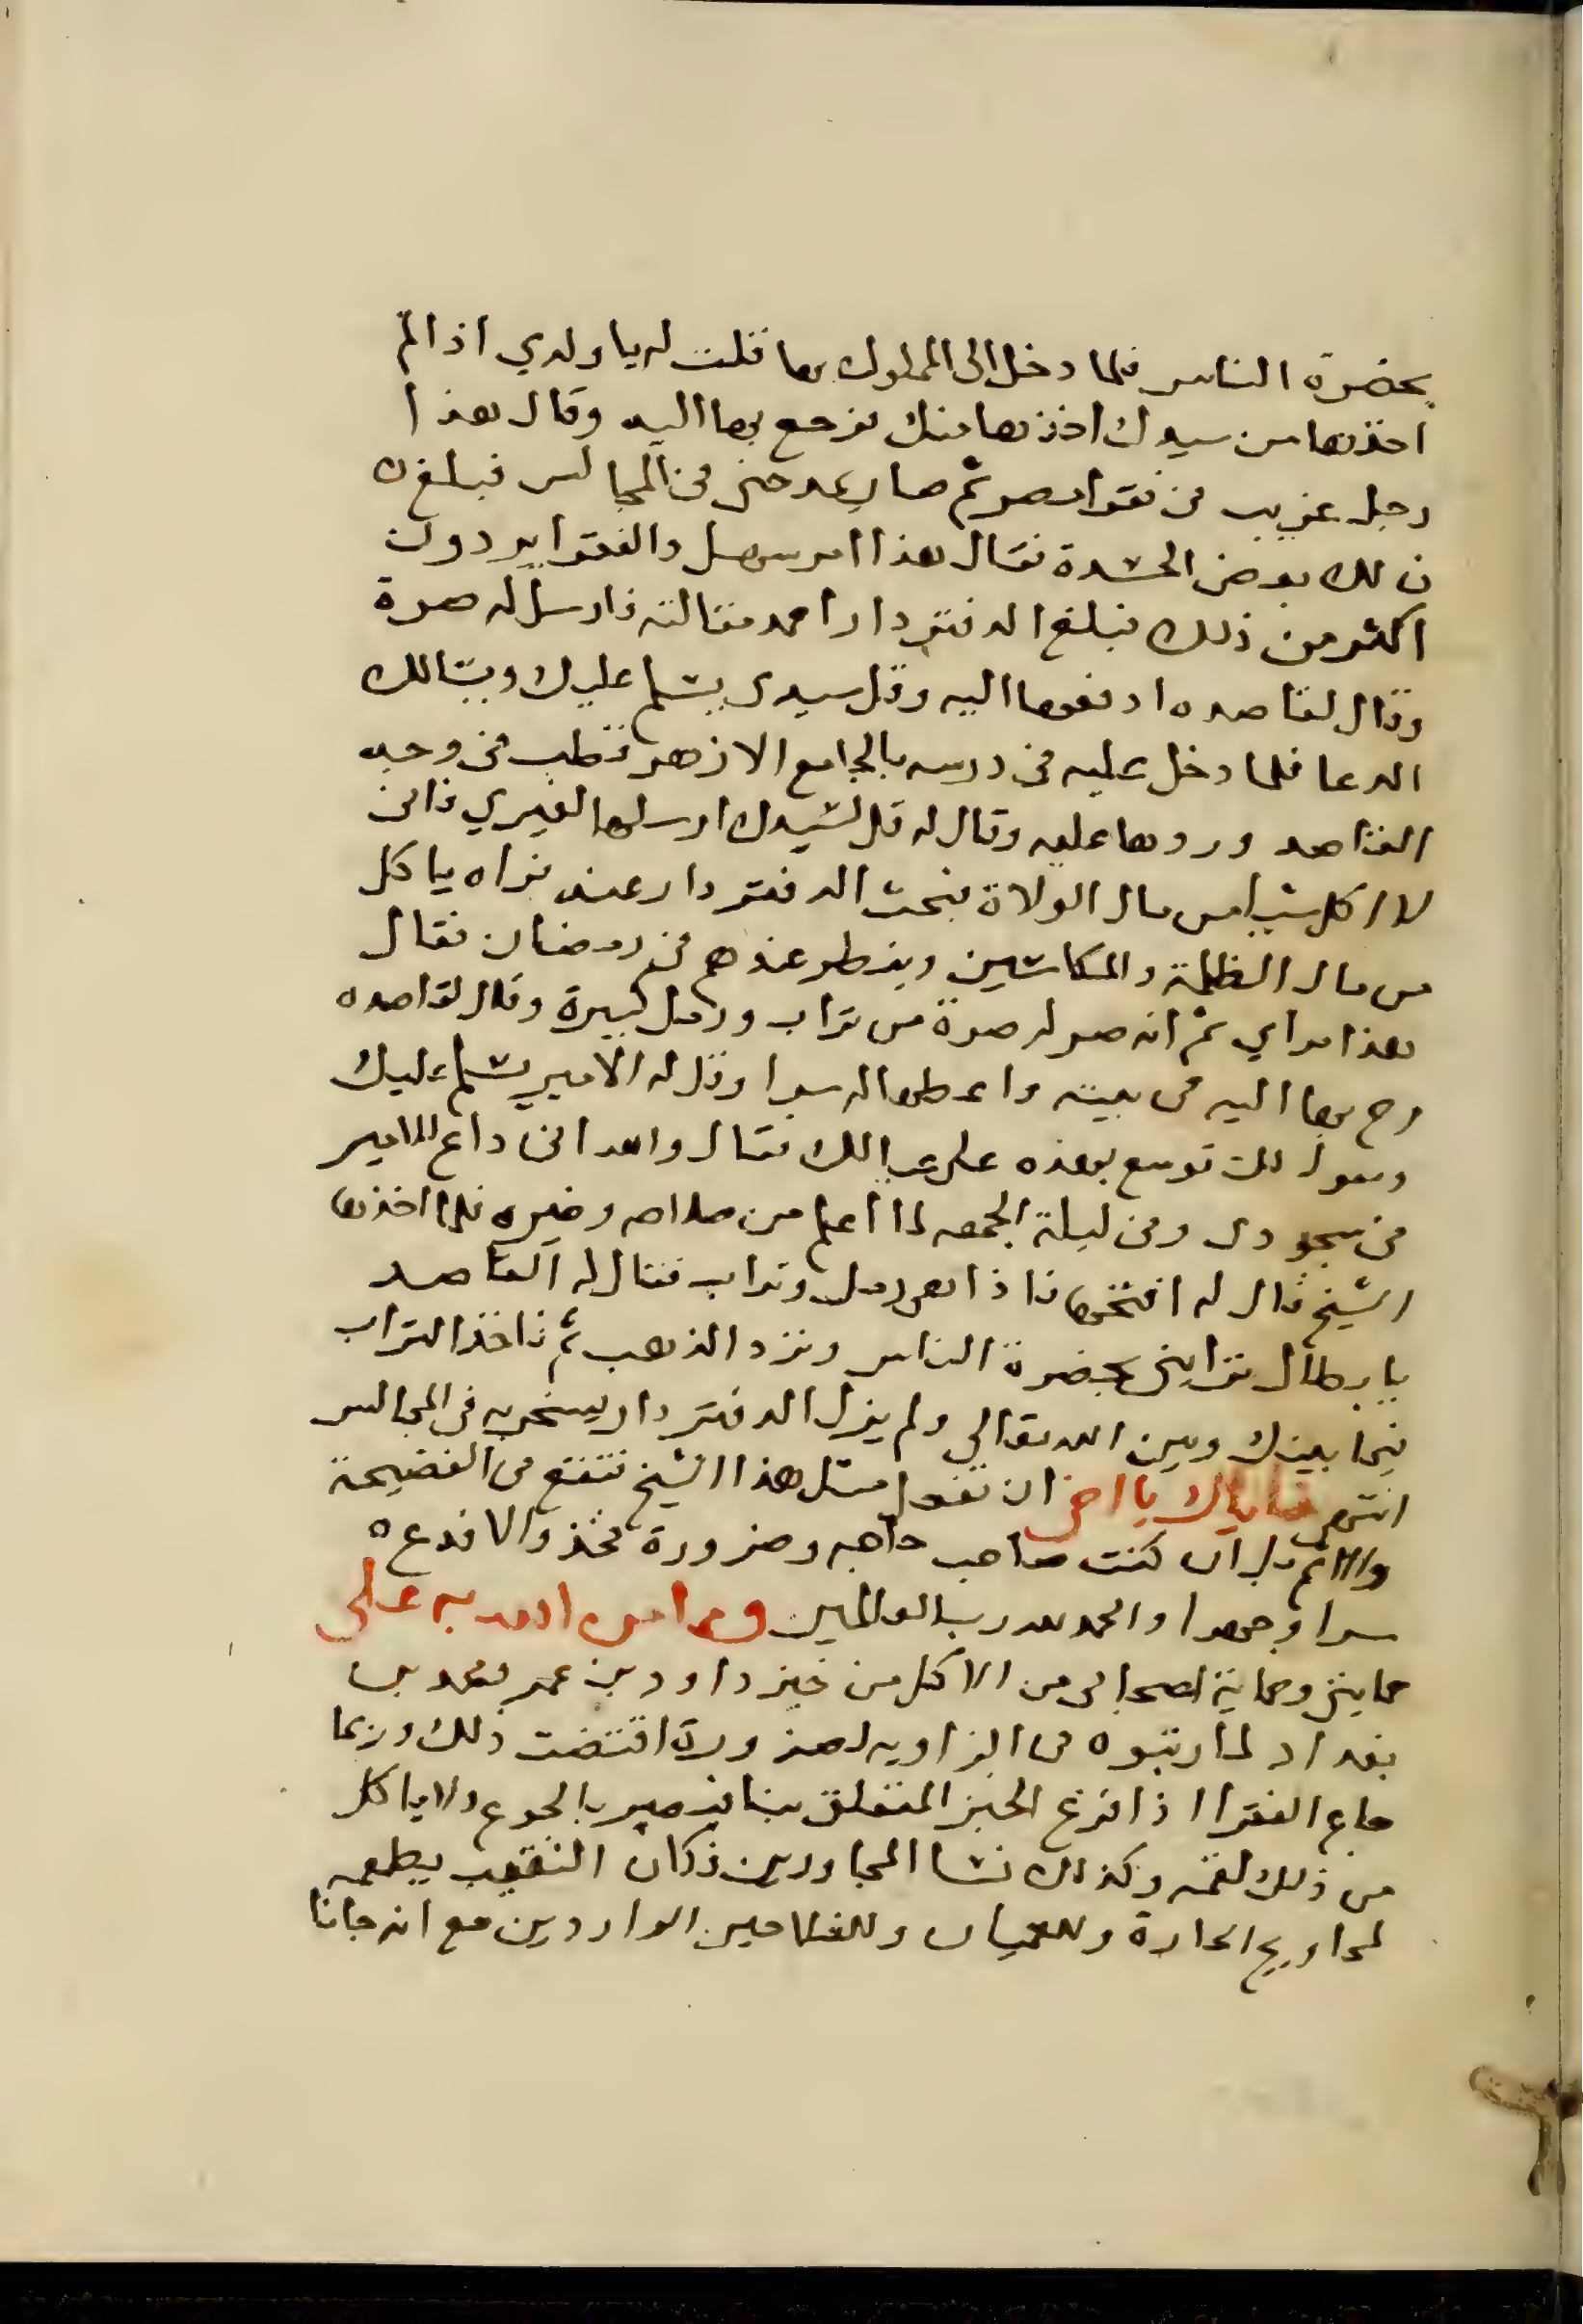 بحضرة الناس فلما دخل الى المملوك بها قلت له يا ولدي اذا لم
اخذتها من سيدك اخذتها منك فرجع بها اليه وقال هذا
رجل غريب فى فقرا مصر ثم صار يمدحني فى المجالس فبلغ
ذلك بعض الحسدة فقال هذا امر سهل والفقرا يردون
اكثر من ذلك فبلغ الدفتردار احمد مقالته فارسل له صرة
وقال لقاصده ادفعها اليه وقل سيدى يسلم عليك ويسالك
الدعا فلما دخل عليه فى درسه بالجامع الازهر قطب فى وجه
القاصد وردها عليه وقال له قل لسيدك ارسلها لغيري فانى
لا اكل شيا من مال الولاة فبحث الدفتردار عنه فراه ياكل
من مال الظلمة والمكاسين ويفطر عندهم فى رمضان فقال
هذا مراي ثم انه صر له صرة من تراب ورمل كبيرة وقال لقاصده
رح بها اليه فى بيته واعطها له سرا وقل له الامير يسلم عليك
ويقول لك توسع بهذه على عيالك فقال والله انى داع للامير
فى سجودى وفى ليلة الجمعه لما اعلم من صلاحه وخيره فلما اخذها
الشيخ قال له افتحها فاذا هى رمل وتراب فقال له القاصد
يا بطال ترايي بحضرة الناس وترد الذهب ثم تاخذ التراب
فيما بينك وبين الله تعالى ولم يزل الدفتردار يسخر به فى المجالس
انتهى فاياك يا اخى ان تفعل مثل هذا الشيخ فتقع فى الفضيحة
والاثم بل ان كنت صاحب حاجه وضرورة فخذ والا فدعه
سرا وجهرا والحمد لله رب العالمين ومما من الله به على
حمايتى وحماية اصحابى من الاكل من خبز داود بن عمر بن
بغداد لما رتبوه فى الزاويه لضرورة اقتضت ذلك وربما
جاع الفقرا اذا فرغ الخبز المتعلق بنا فيصبر بالجوع ولا ياكل
من ذلك لقمه وكذلك نسا المجاورين فكان النقيب يطعمه
لمحاويج الحارة وللعميان وللفلاحين الواردين مع انه جانا